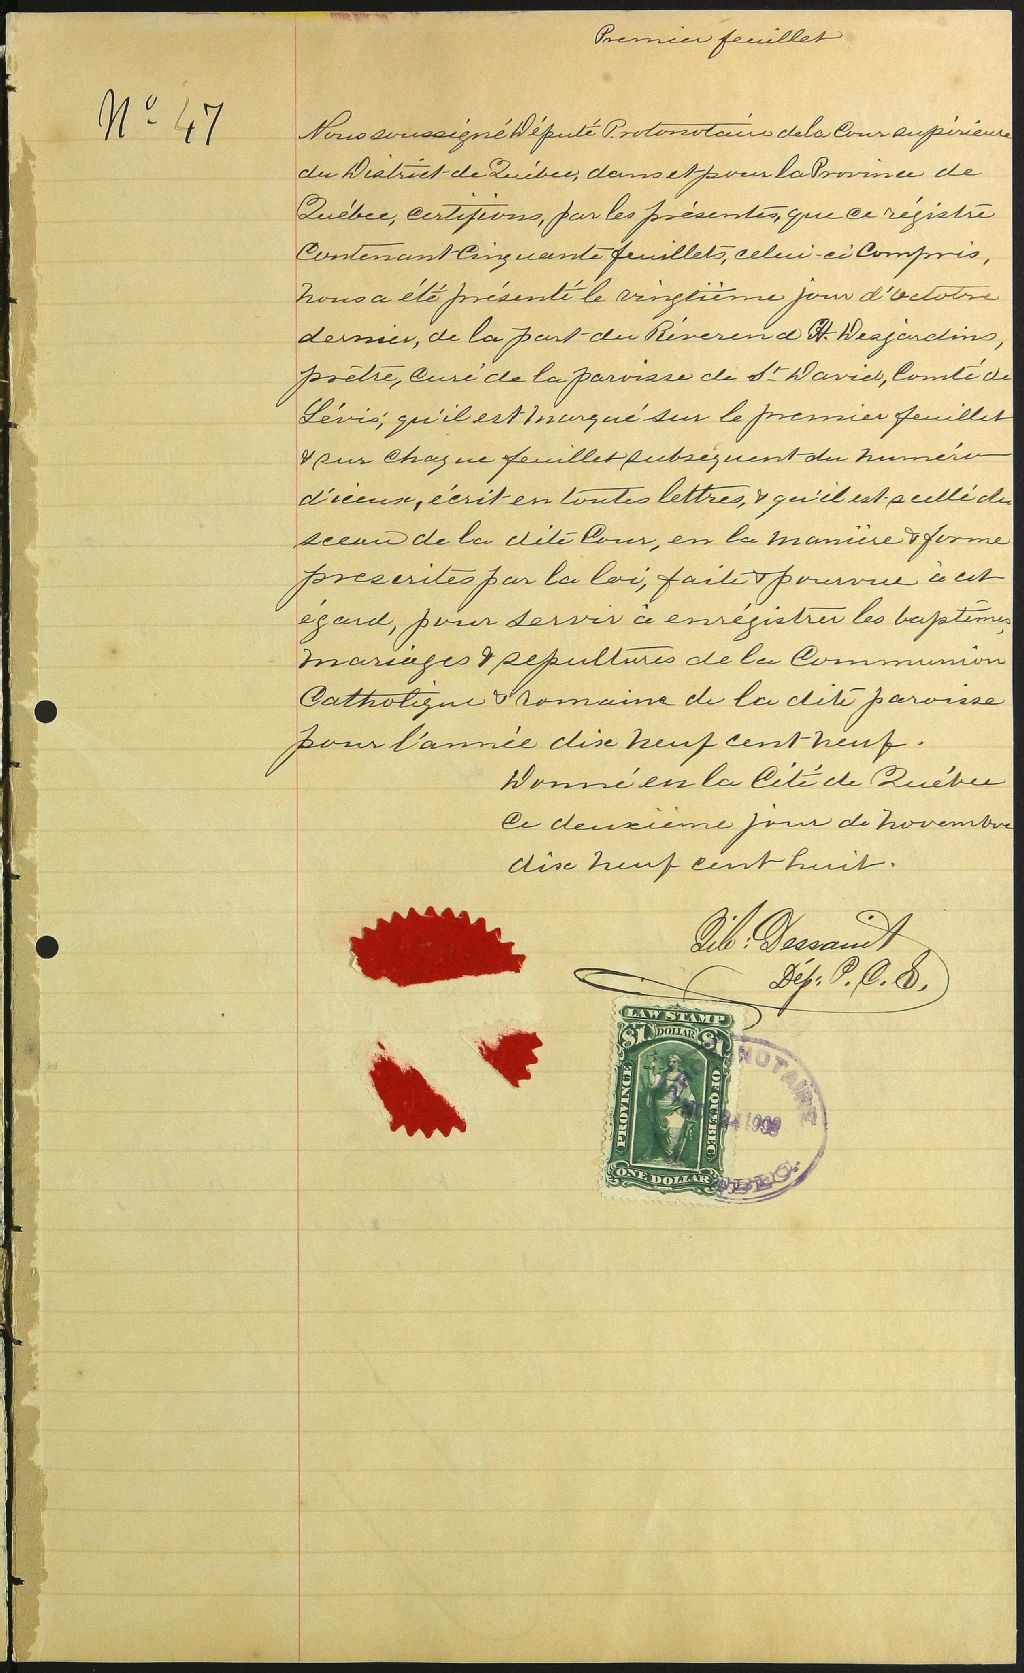 Premier feuillet
No 47
Nous soussigné Député Protonotaire de la Cour supérieure
du District de Québec, dans et pour la Province de
Québec, certifions, par les présentes, que ce régistre
Contenant Cinquante feuillets, celui-ci Compris,
nous a été présenté le vingtième jour d'octobre
dernier, de la part du Réverend H. Desjardins,
prêtre, curé de la paroisse de St David, Comté de
Lévis; qu'il est marqué sur le premier feuillet
& sur chaque feuillet subséquent du numéro
d'iceux, écrit en toutes lettres, & qu'il est scellé du
sceau de la dite Cour, en la manière & forme
prescrites par la loi, faite & pourvue à cet
égard, pour servir à enrégistrer les baptêmes,
mariages & sepultures de la Communion
Catholique & romaine de la dite paroisse
pour l'année dix neuf cent neuf.
Donné en la Cité de Québec
Ce deuxième jour de novembre
dix neuf cent huit.
Dessault
Dép. P. C. S.
LAW STAMP
$1 DOLLAR $1
PROVINCE OF QUEBEC
ONE DOLLAR
NOTAIRE